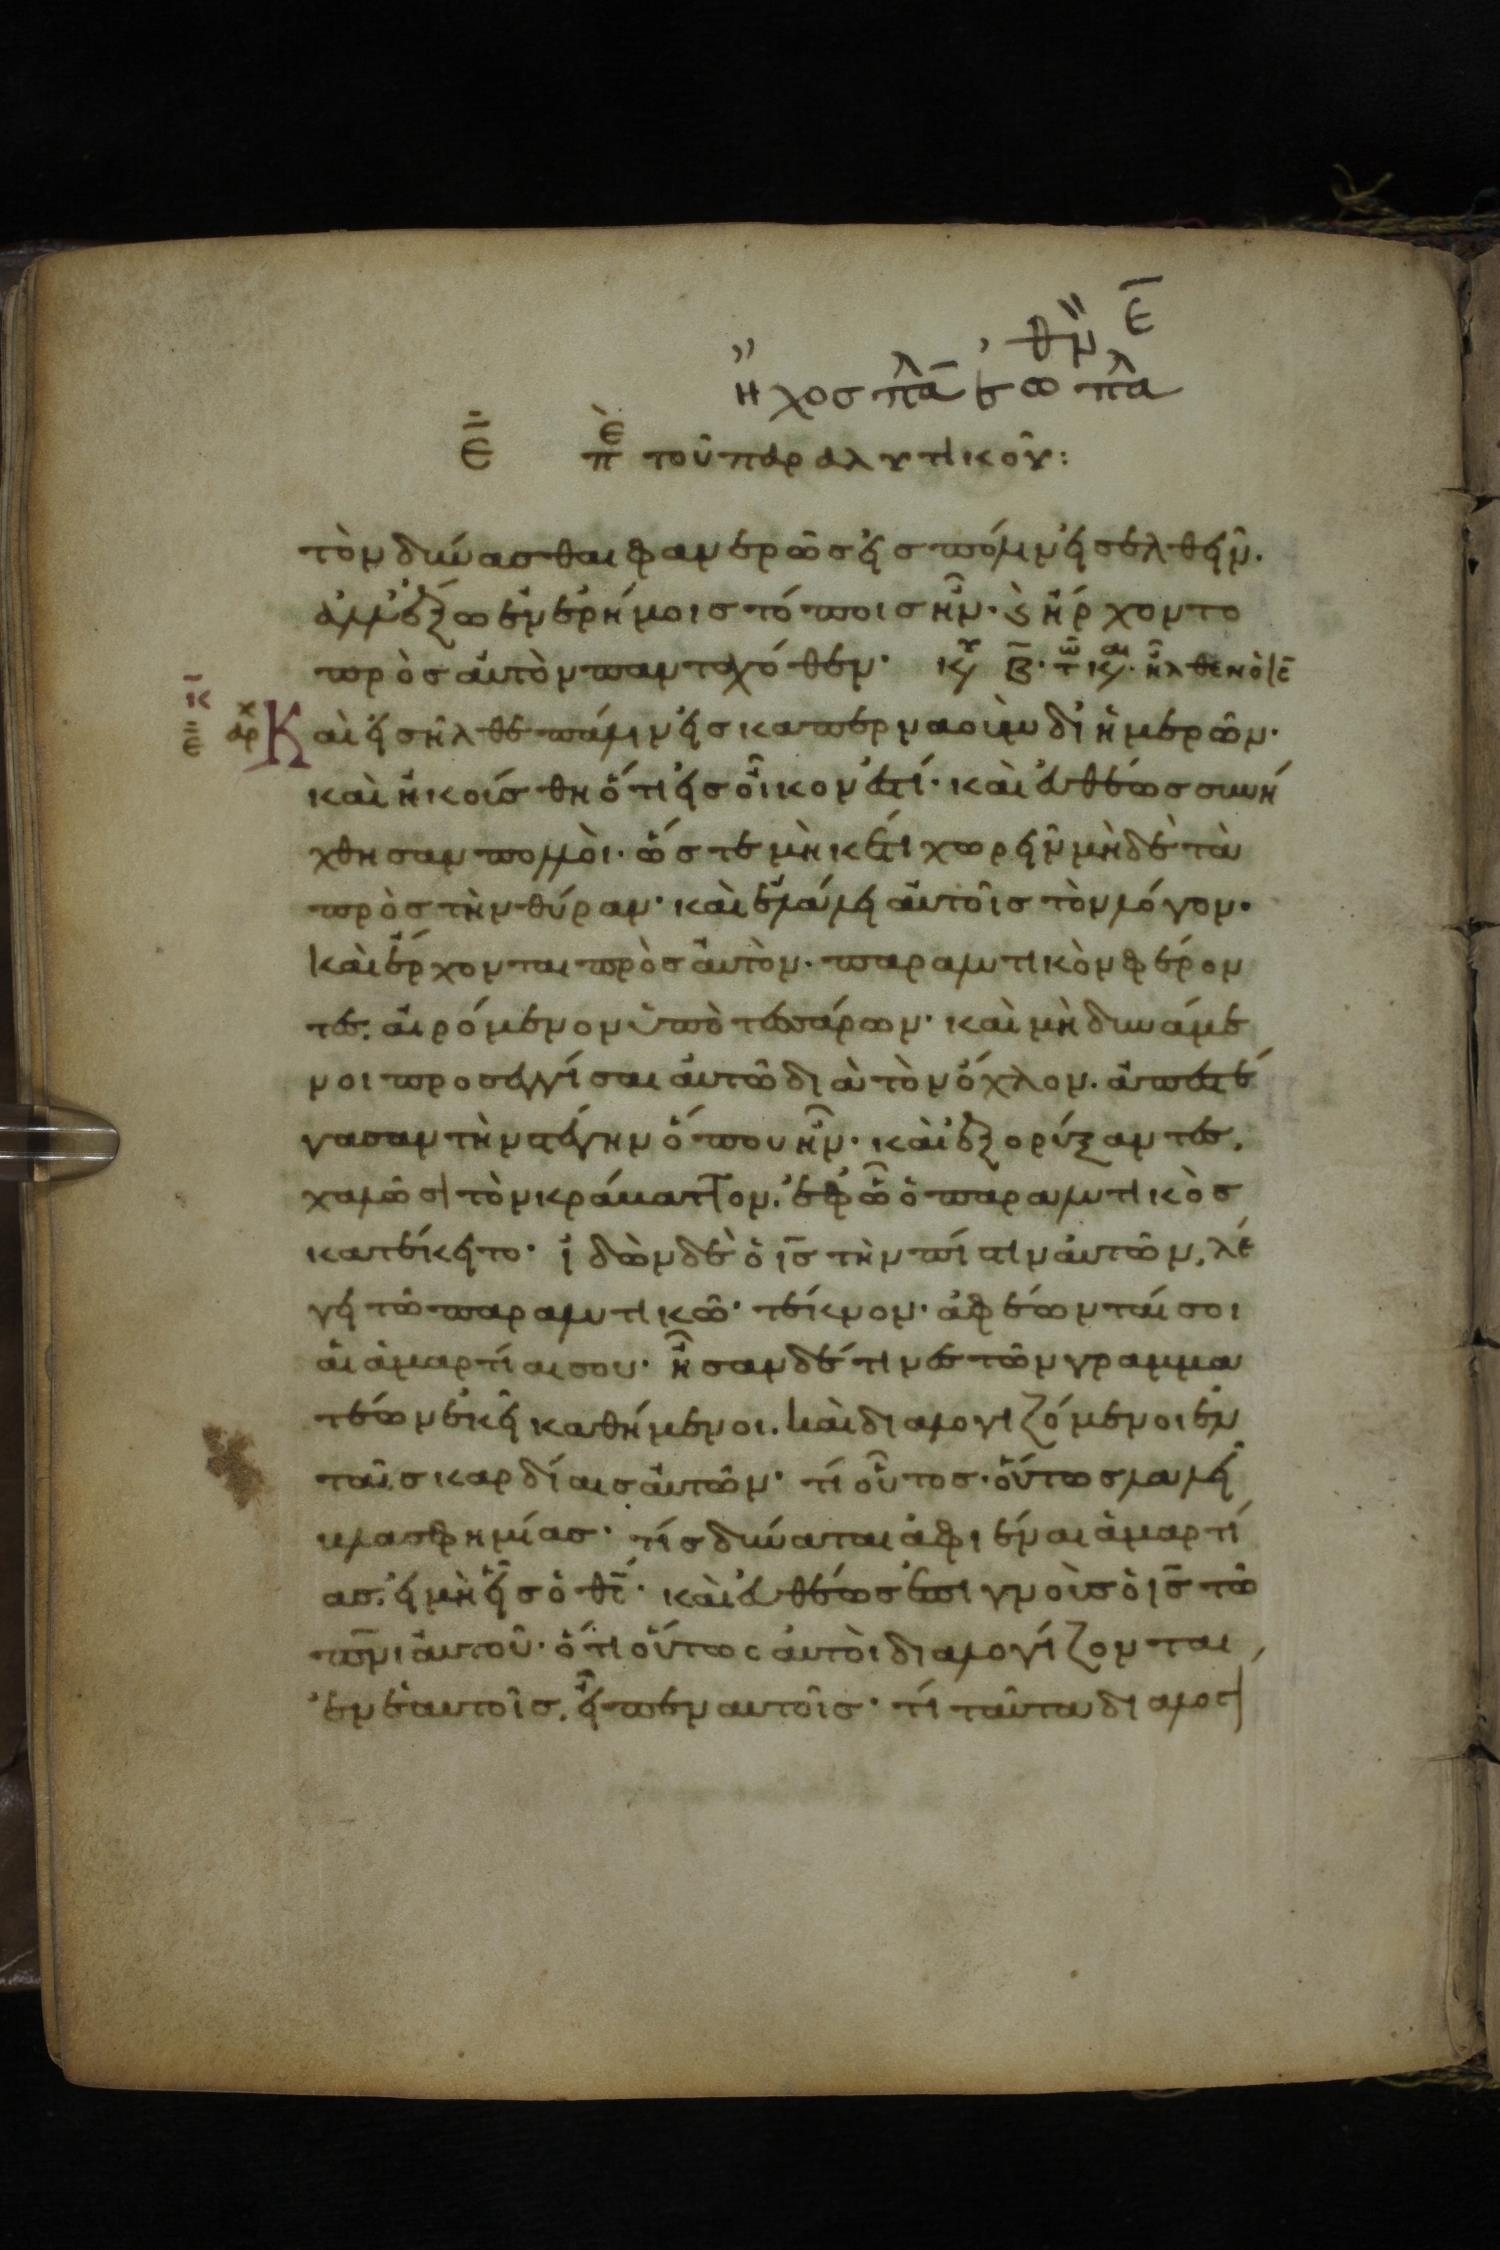 θμ Ε
ηχος πλα β ω πλα
Ε̄ πε τοῦ παραλυτικοῦ:
τὸν δύνασθαι φανερῶς εἰς πόλιν εἰσελθεῖν.
ἀλλ' ἔξω ἐν ἐρήμοις τόποις ἦν· ϗ ἤρχοντο
πρὸς αὐτὸν πανταχόθεν·
Καὶ εἰσῆλθε πάλιν εἰς καπερναοὺμ δι' ἡμερῶν·
καὶ ἠκούσθη ὅτι εἰς οἶκον ἐστί· καὶ εὐθέως συνή
χθησαν πολλοὶ· ὥστε μὴκέτι χωρεῖν μὴδὲ τὰ
πρὸς τὴν θύραν· καὶ ἐλάλει αὐτοῖς τὸν λόγον·
Καὶ ἔρχονται πρὸς αὐτὸν· παραλυτικὸν φέρον
τες, αἰρόμενον ὑπὸ τεσσάρων· καὶ μὴ δυνάμε
νοι προσεγγίσαι αὐτῶ διὰ τὸν ὄχλον· ἀπεστέ
γασαν τὴν στέγην ὅπου ἦν· καὶ ἐξορύξαντες,
χαλῶσι τὸν κράβαττον. ἐφ' ὧ ὁ παραλυτικὸς
κατέκειτο· ἰδὼν δὲ ὁ ι̅ς̅ τὴν πίστιν αὐτῶν, λέ
γει τῶ παραλυτικῶ· τέκνον· ἀφέωνταί σοι
αἱ ἁμαρτίαι σου· ἦσαν δέ τινες τῶν γραμμα
τέων ἐκεῖ καθήμενοι. καὶ διαλογιζόμενοι ἐν
ταῖς καρδίαις αὐτῶν· τί οὗτος· οὕτως λαλεῖ
βλασφημίας· τίς δύναται ἀφιέναι ἁμαρτί
ας, εἰ μὴ εἷς ὁ θ̅ς̅· καὶ εὐθέως ἐπιγνοὺς ὁ ι̅ς̅ τῶ
π̅ν̅ι αὐτοῦ· ὅτι οὕτως αὐτοὶ διαλογίζονται,
ἐν ἑαυτοῖς, εἶπεν αυτοῖς· τί ταῦτα διαλογι